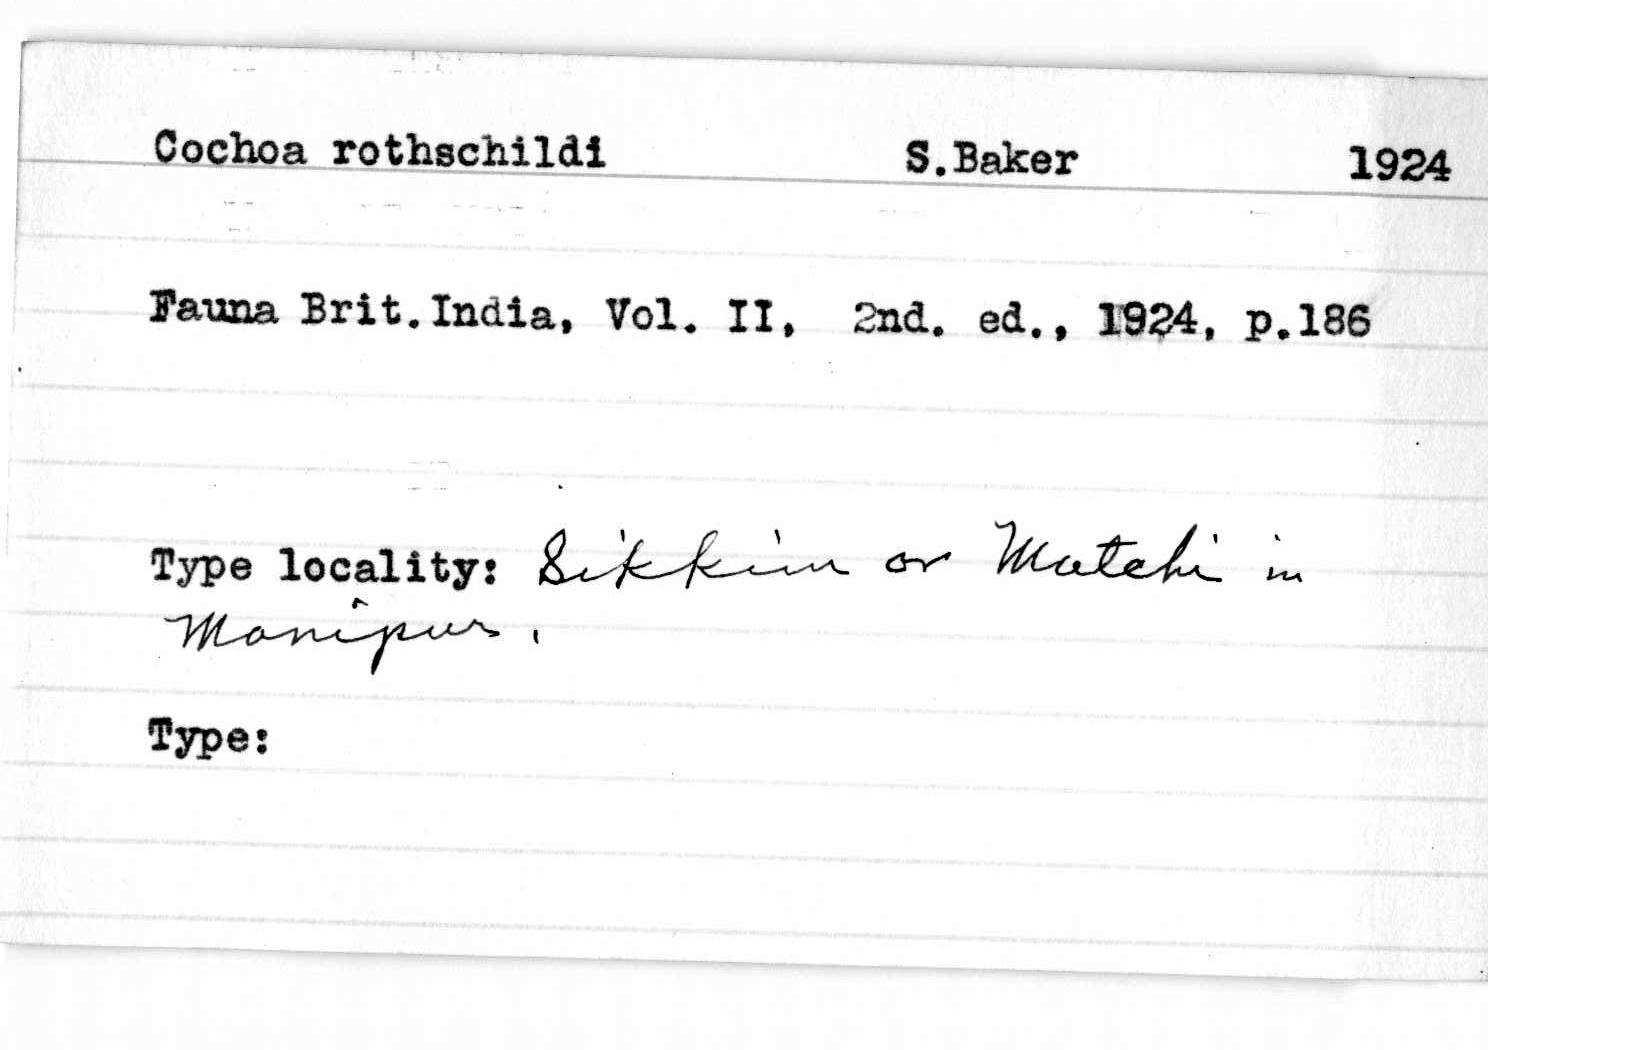 Cochoa rothschildi S.Baker 1924
Fauna Brit.India, Vol. II, 2nd. ed., 1924, p.186
Type locality: Sikkim or Matchi in
Manipur.
Type: